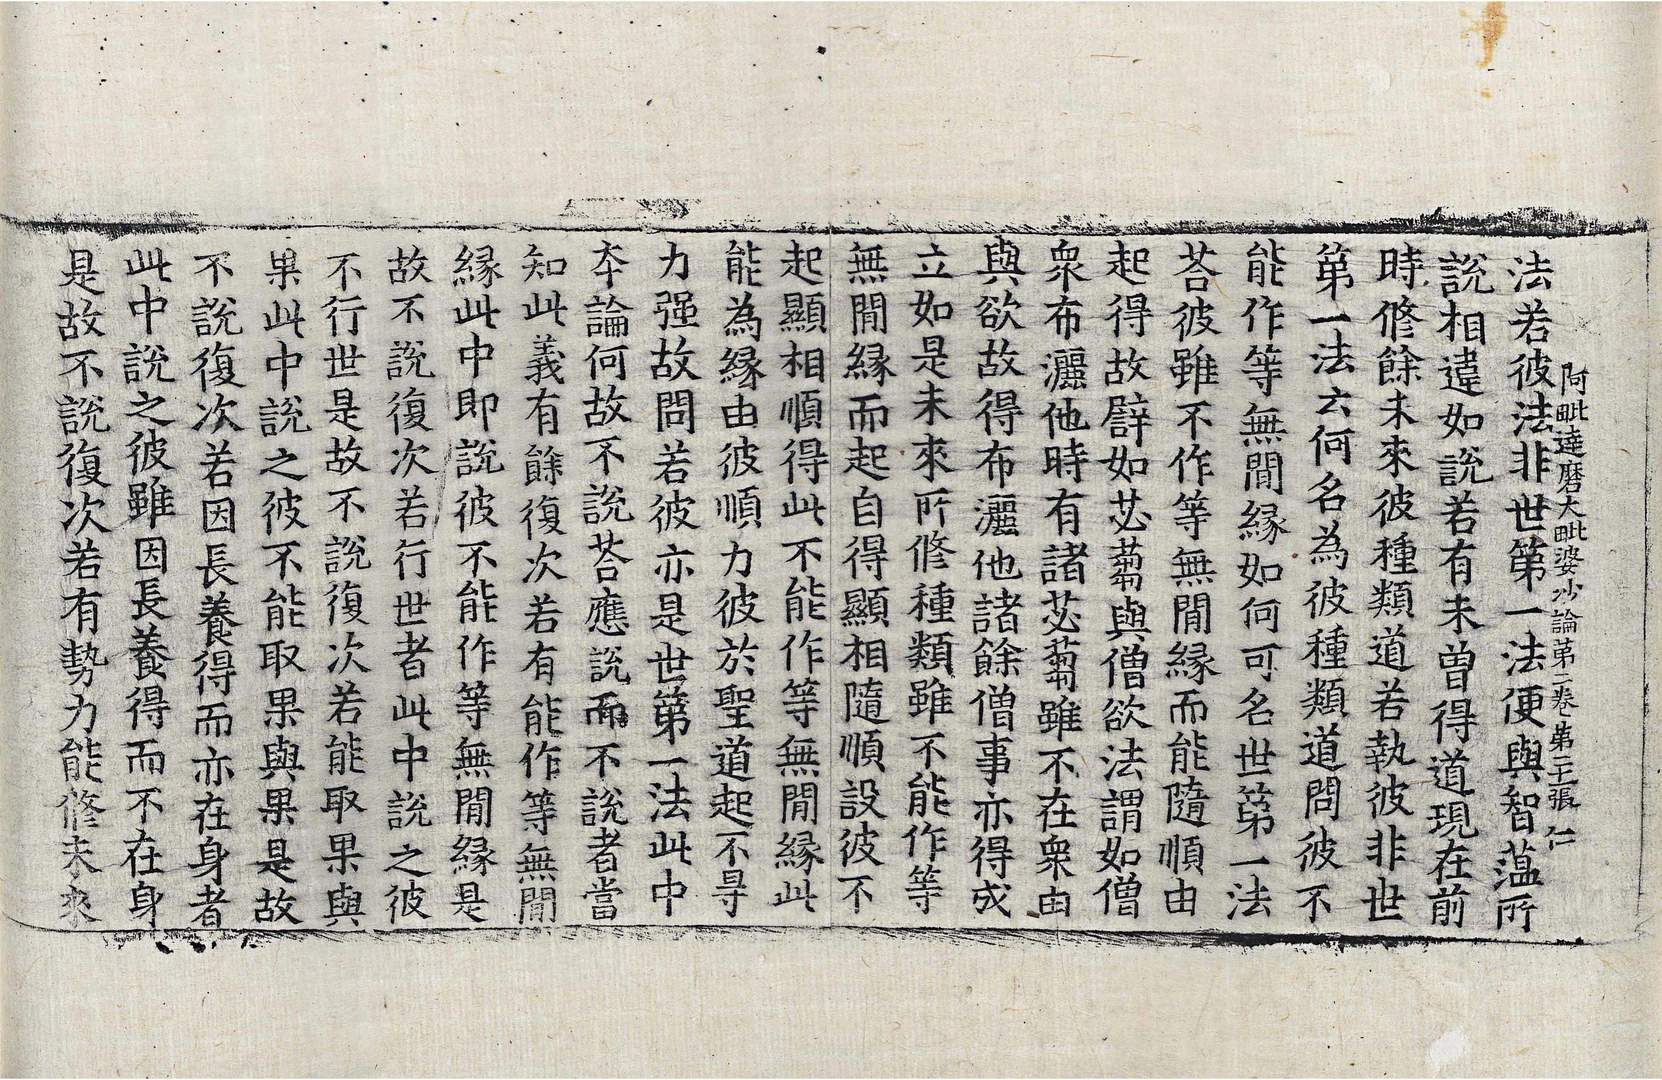 阿毗達磨大毗婆沙論第二卷第二十張 仁
法若彼法非世第一法便與智蕰所
說相違如說若有未曾得道現在前
時修餘未來彼種類道若執彼非世
第一法云何名為彼種類道問彼不
能作等無間緣如何可名世第一法
荅彼雖不作等無間緣而能隨順由
起得故譬如苾蒭與僧欲法謂如僧
衆布灑他時有諸苾蒭雖不在衆由
與欲故得布灑他諸餘僧事亦得成
立如是未來所修種類雖不能作等
無間緣而起自得顯相隨順設彼不
起顯相順得此不能作等無間緣此
能為緣由彼順力彼於聖道起不㝵
力强故問若彼亦是世第一法此中
夲論何故不說荅應說而不說者當
知此義有餘復次若有能作等無間
緣此中即說彼不能作等無間緣是
故不說復次若行世者此中說之彼
不行世是故不說復次若能取果與
果此中說之彼不能取果與果是故
不說復次若因長養得而亦在身者
此中說之彼雖因長養得而不在身
是故不說復次若有勢力能修未來